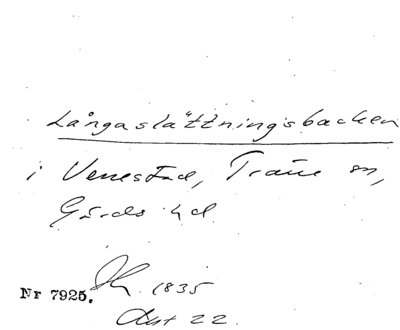 Långaslättningsbacken
i Venestad, Träne sn,
Gärds hd.
1835
Nr 7925.
Akt 22.